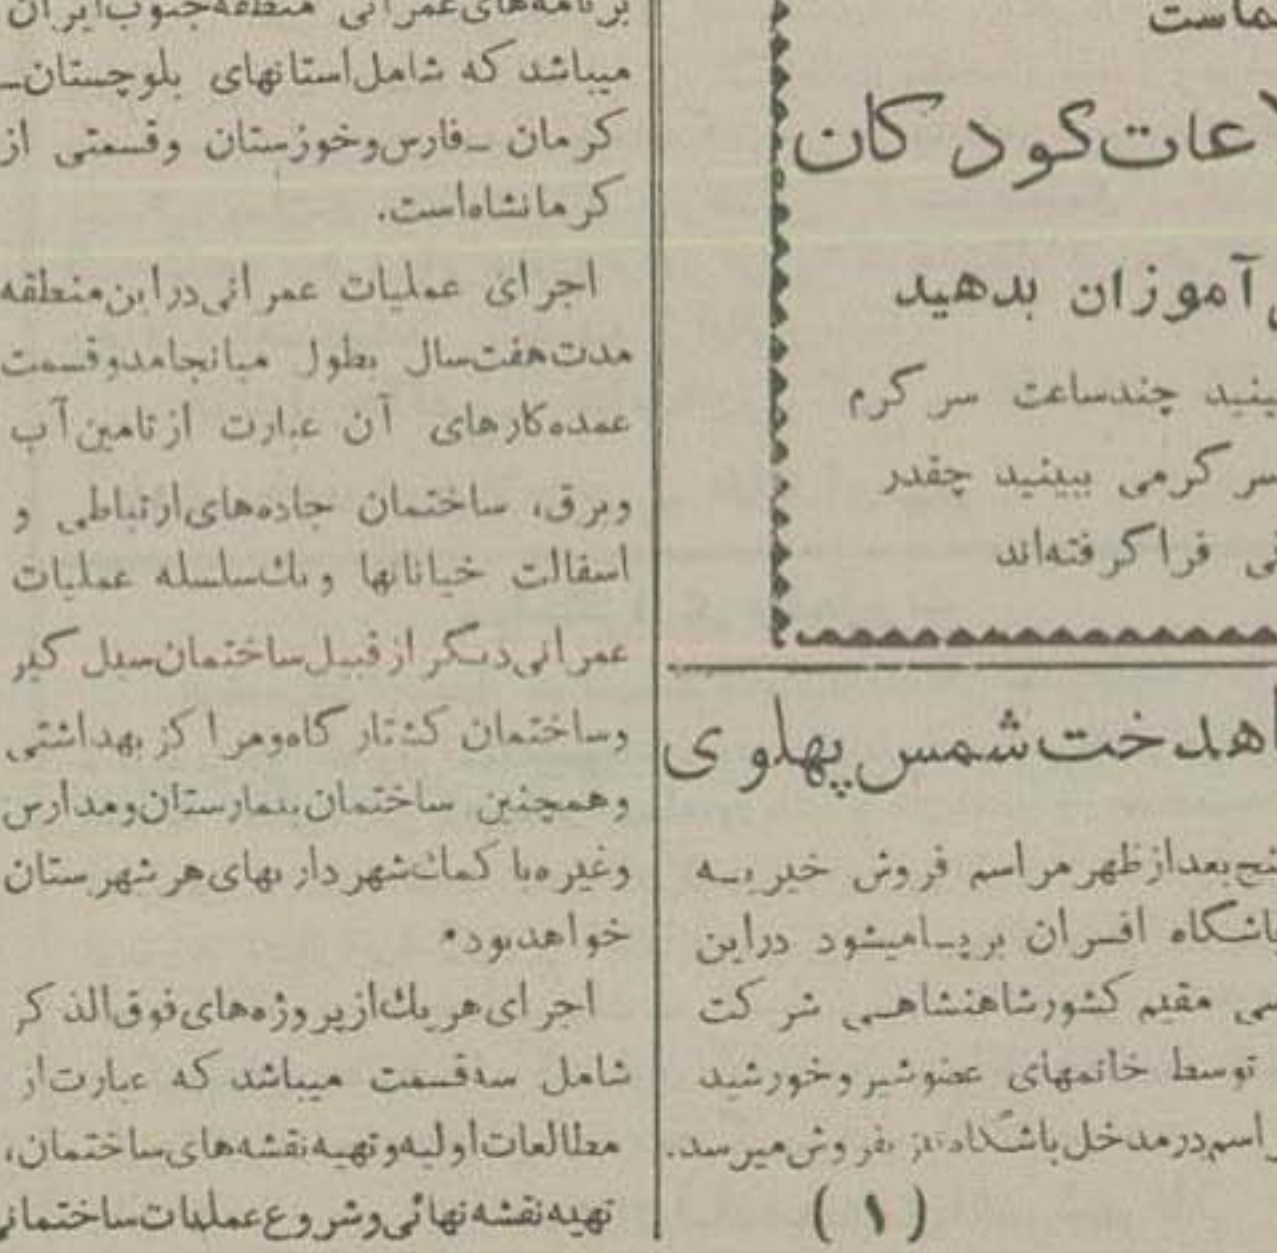 ماست
عات کودکان
آموزان بدهید
چندساعت سرگرم
سرگرمی ببینید چقدر
فراگرفته‌اند
شمس پهلوی
بعدازظهر مراسم فروش خیریه
باشگاه افسران برپا میشود دراین
مقیم کشورشاهنشاهی شرکت
توسط خانمهای عضوشیروخورشید
درمدخل باشگاه نیز بفروش میرسد.
(۱)
برنامه‌های عمرانی منطقه جنوب ایران
میباشد که شامل استانهای بلوچستان-
کرمان - فارس وخوزستان وقسمتی از
کرمانشاه است.
اجرای عملیات عمرانی دراین منطقه
مدت هفت سال بطول میانجامد وقسمت
عمده کارهای آن عبارت ازتامین آب
وبرق، ساختمان جاده‌های ارتباطی و
اسفالت خیابانها ویك سلسله عملیات
عمرانی دیگر ازقبیل ساختمان سیل گیر
وساختمان کشتارگاه ومراکز بهداشتی
وهمچنین ساختمان بیمارستان ومدارس
وغیره با کمك شهرداریهای هر شهرستان
خواهد بود.
اجرای هریك ازپروژه‌های فوق الذکر
شامل سه قسمت میباشد که عبارت از
مطالعات اولیه وتهیه نقشه‌های ساختمان،
تهیه نقشه نهائی وشروع عملیات ساختمانی